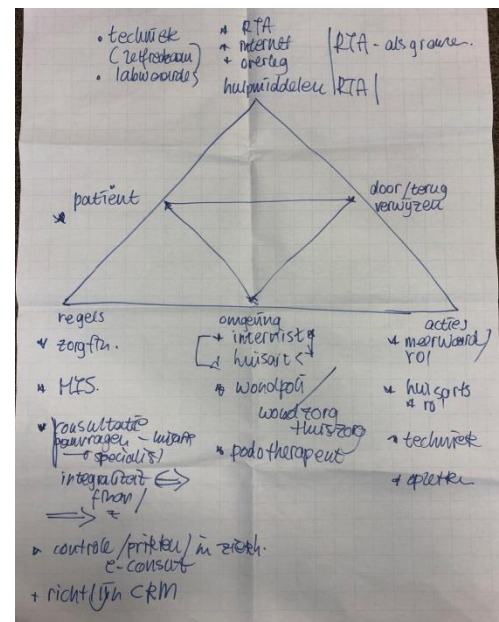 • techniek
(zelfredzaam)
• labwaardes
* RTA
* internet
+ overleg
hulpmiddelen
RTA - als
RTA
* patiënt
door/terug
verwijzen
regels
* zorgfin.
* HIS.
* consultatie
aanvragen - huisarts
specialist
finan
⟹
* controle /prikken/ in ziekh.
e-consult
+ richtlijn CRM
omgeving
* internist
* huisarts
* wondpoli
wondzorg
thuiszorg
* podotherapeut
acties
* meerwaarde
rol
* huisarts
* rol
* techniek